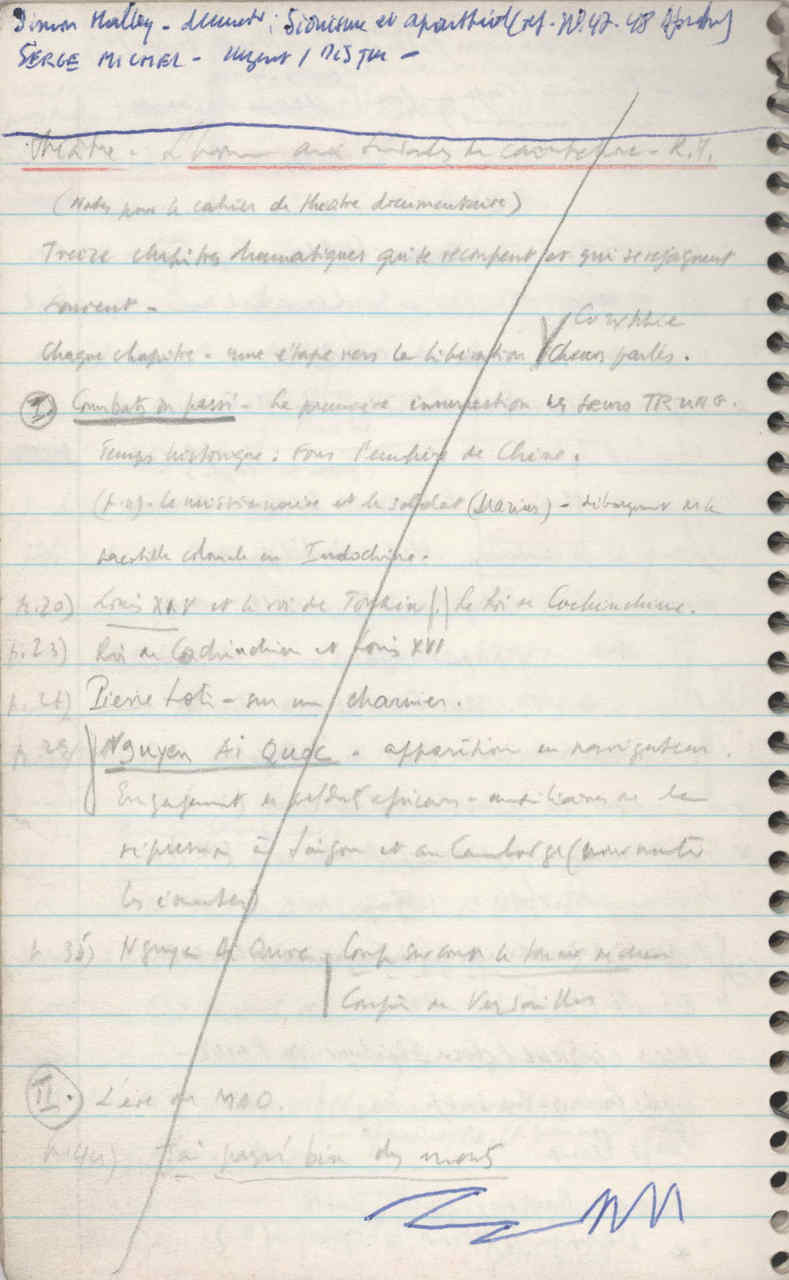 Simon Malley - : Sionisme et apartheid (ref. N° 47-48
SERGE MICHEL - urgent /
Théâtre - L'homme aux sandales de caoutchouc - K.Y.
(Notes pour le cahier de theatre documentaire)
Treize chapitres dramatiques qui se recoupent et qui se rejoignent
souvent -
Coryphée
Chaque chapitre - une étape vers la libération / Choeurs parlés.
I Combats du passé - La première insurrection les soeurs TRUNG.
Temps historique : sous l'empire de Chine.
- Le missionnaire et le soldat (Marius) - débarquent
coloniale en Indochine.
p. 20) Louis XIV et le roi de Tonkin / Le Roi de Cochinchine.
p. 23) Roi de Cochinchine et Louis XVI
Pierre Loti - sur un charnier.
Nguyen Ai Quoc - apparition en navigateur.
Engagement de soldats africains - auxiliaires de la
répression à Saigon et au Cambodge (pour mater
les émeutes)
p. 35) Nguyen Ai Quoc - Coup sur coup le
de Versailles
II. L'ère de MAO.
J'ai passé bien des monts